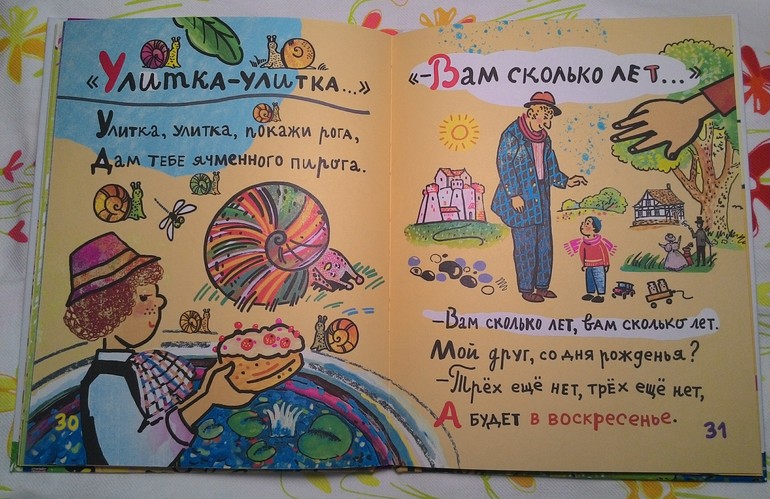 «Улитка-улитка...»
Улитка, улитка, покажи рога,
Дам тебе ячменного пирога.
30
«-Вам сколько лет...»
-Вам сколько лет, вам сколько лет.
Мой друг, со дня рожденья?
-Трёх ещё нет, трёх ещё нет,
А будет в воскресенье.
31